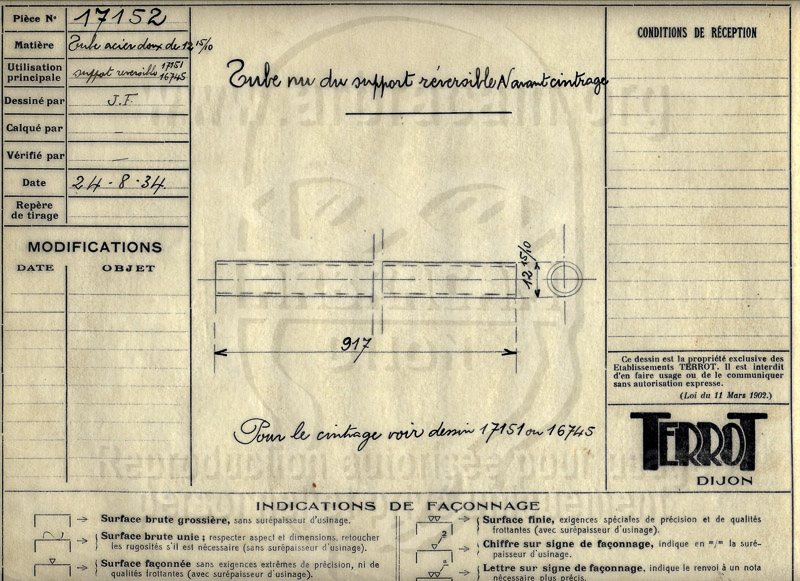 Pièce Nº 17152
Matière Tube acier doux de 12 15/10
Utilisation principale support reversible 17151 16745
Dessiné par J.F.
Calqué par –
Vérifié par –
Date 24-8-34
Repère de tirage
MODIFICATIONS
DATE OBJET
Tube nu du support réversible N avant cintrage
12 15/10
917
Pour le cintrage voir dessin 17151 ou 16745
CONDITIONS DE RÉCEPTION
Ce dessin est la propriété exclusive des
Etablissements TERROT. Il est interdit
d'en faire usage ou de le communiquer
sans autorisation expresse.
(Loi du 11 Mars 1902.)
TERROT
DIJON
INDICATIONS DE FAÇONNAGE
Surface brute grossière, sans surépaisseur d'usinage.
Surface brute unie ; respecter aspect et dimensions, retoucher
les rugosités s'il est nécessaire (sans surépaisseur d'usinage).
Surface façonnée sans exigences extrêmes de précision, ni de
qualités frottantes (avec surépaisseur d'usinage).
Surface finie, exigences spéciales de précision et de qualités
frottantes (avec surépaisseur d'usinage).
Chiffre sur signe de façonnage, indique en "/" la suré-
paisseur d'usinage.
Lettre sur signe de façonnage, indique le renvoi à un nota
nécessaire plus précis.